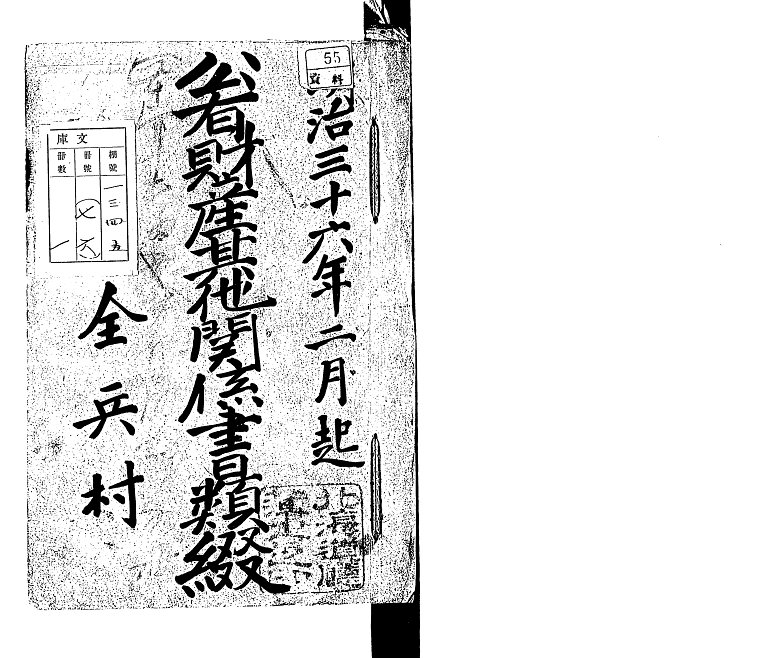 55
資料
明治三十六年二月起
公有財産其他関係書類綴
全兵村
文庫
棚號
一三四五
冊號
七六
冊數
一